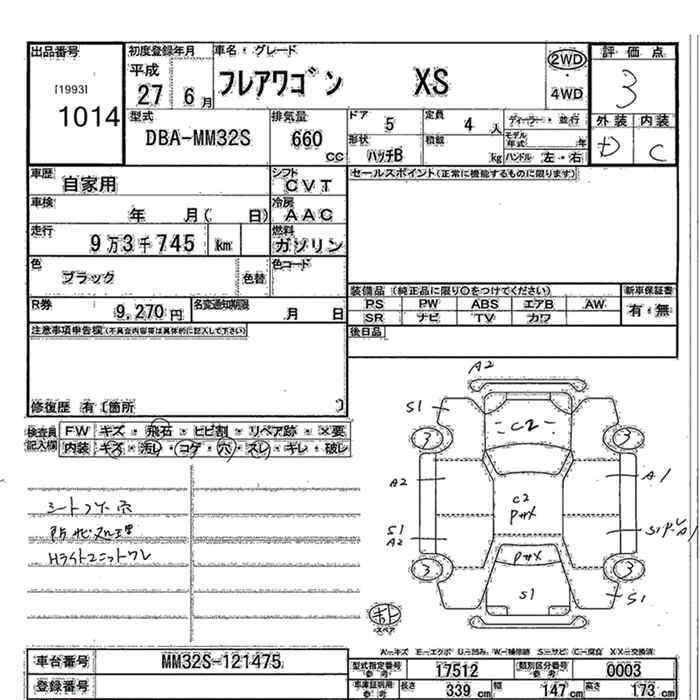 出品番号
[1993]
1014
初度登録年月
平成
27 6月
車名・グレード
フレアワゴン XS
2WD
・
4WD
評価点
3
外装 内装
D C
型式
DBA-MM32S
排気量
660
CC
ドア 5
定員 4 人
ディーラー・並行
形状 ハッチB
積載 kg
モデル年式 年
ハンドル 左・右
車歴 自家用
シフト CVT
車検 年 月( 日)
冷房 AAC
走行 9万3千745 km
燃料 ガソリン
色 ブラック 色替
色コード
R券 9,270円
名変通知期限 月 日
注意事項申告欄(不具合内容等は具体的に記入して下さい)
修復歴 有〔箇所 〕
セールスポイント(正常に機能するものに限ります)
装備品(純正品に限り○をつけてください)
新車保証書
PS PW ABS エアB AW
SR ナビ TV カワ
有・無
後日品
検査員記入欄
FW キズ・飛石・ヒビ割・リペア跡・×要
内装 キズ・汚レ・コゲ・穴・スレ・キレ・破レ
シートコゲ穴
防サビ処理
HライトユニットワレA2
S1
C2
3
3
A2
A1
C2
S1
A2
3
3
S1
S1
スペア
A=キズ E=エクボ U=凹み W=補修跡 S=サビ C=腐食 XX=交換済
車台番号 MM32S-121475
登録番号
型式指定番号参考 17512
類別区分番号参考 0003
車庫証明用参考
長さ 339 cm
幅 147 cm
高さ 173 cm